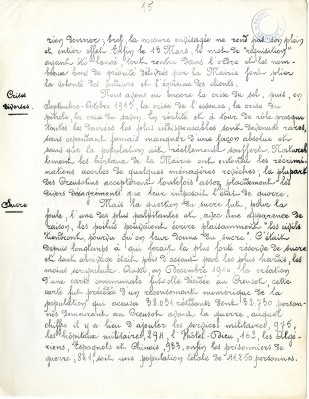 15
rien donner ; bref, la mesure envisagée ne rend pas son plein
et entier effet. Enfin le 13 Mars, le mot de "réquisition"
ayant été lancé, tout rentre dans l'ordre et les nom-
breux bons de priorité délivrés par la Mairie font plier
la volonté des laitiers et l'égoïsme des clients.
Crises
diverses.
Nous avons eu encore la crise du sel, puis, en
Septembre-Octobre 1915, la crise de l'essence, la crise du
pétrole, la crise du savon. En réalité et à tour de rôle presque
toutes les denrées les plus indispensables sont devenues rares,
sans cependant jamais manquer d'une façon absolue et
sans que la population ait réellement souffert. Naturel-
lement les bureaux de la Mairie ont entendu les récrimi-
nations acerbes de quelques ménagères revêches ; la plupart
des Creusotins acceptèrent toutefois assez placidement les
divers désagréments que leur imposait l'état de guerre.
Sucre
Mais la question du sucre fut, pour la
foule, l'une des plus palpitantes et, avec une apparence de
raison, les poilus pouvaient écrire plaisamment "les civils
tiendront, pourvu qu'on leur donne du sucre". C'était
depuis longtemps à qui ferait la plus forte réserve de sucre
et tout arrivage était pris d'assaut par les plus hardis, les
moins scrupuleux. Aussi, en Décembre 1916, la création
d'une carte communale fut-elle décidée au Creusot, cette
carte fut précédée d'un recensement numérique de la
population qui accusa 38.031 habitants dont 32.750 person-
nes demeurant au Creusot avant la guerre, auquel
chiffre il y a lieu d'ajouter les services militaires, 975,
les hôpitaux militaires, 291, l'Hôtel-Dieu, 162, les Algé-
riens, Espagnols et Chinois, 953, enfin les prisonniers de
guerre, 821, soit une population totale de 41.250 personnes.